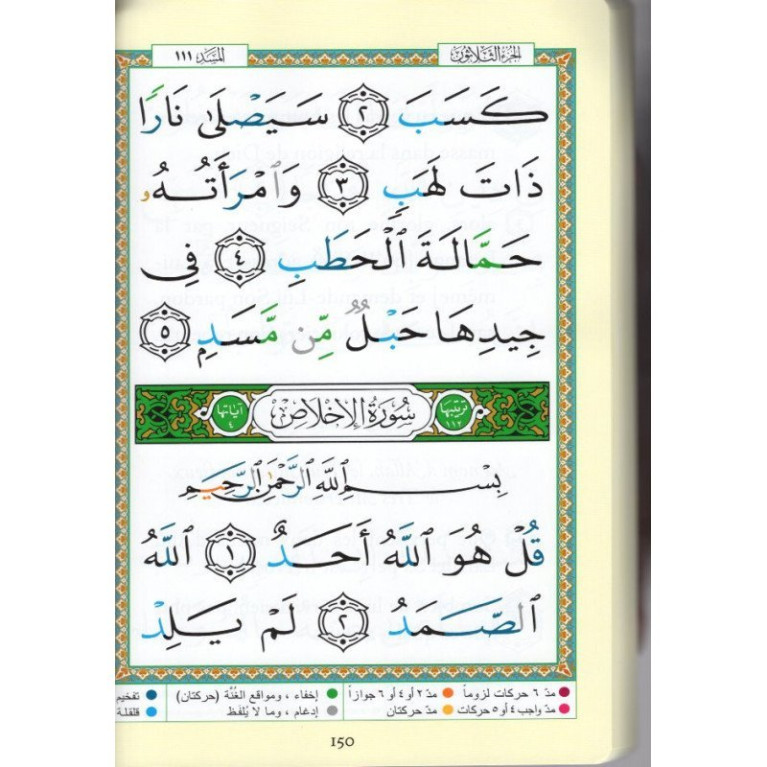 الجزء الثلاثون
المسد ١١١
كَسَبَ ٢ سَيَصْلَىٰ نَارًا
ذَاتَ لَهَبٍ ٣ وَٱمْرَأَتُهُۥ
حَمَّالَةَ ٱلْحَطَبِ ٤ فِى
جِيدِهَا حَبْلٌ مِّن مَّسَدٍ ٥
ترتيبها ١١٢ سُورَةُ الإِخْلَاصِ آياتها ٤
بِسْمِ ٱللَّهِ ٱلرَّحْمَٰنِ ٱلرَّحِيمِ
قُلْ هُوَ ٱللَّهُ أَحَدٌ ١ ٱللَّهُ
ٱلصَّمَدُ ٢ لَمْ يَلِدْ
مدّ ٦ حركات لزوماً مدّ ٢ أو ٤ أو ٦ جوازاً إخفاء ، ومواقع الغُنَّة (حركتان) تفخيم
مدّ واجب ٤ أو ٥ حركات مدّ حركتان إدغام ، وما لا يُلفَظ قلقلة
150